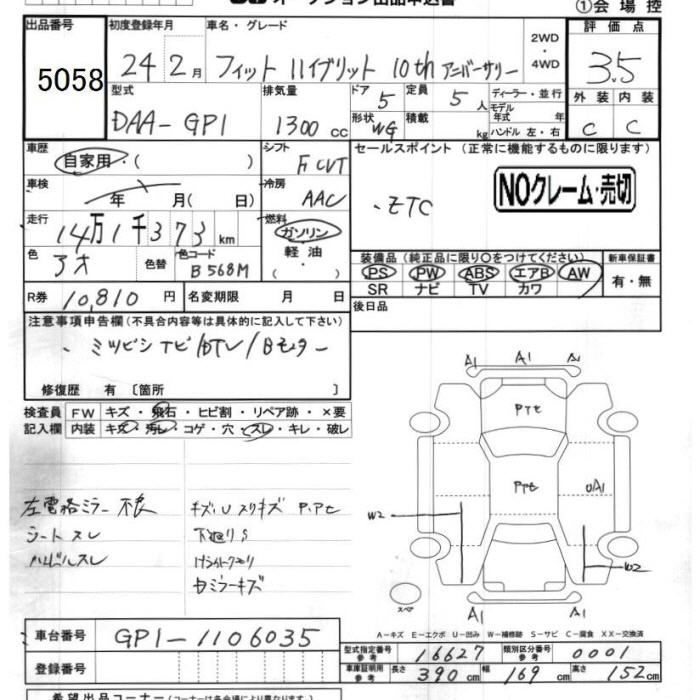 ①会場控
出品番号 初度登録年月 車名・グレード 2WD・4WD 評価点
5058 24 2月 フィット ハイブリット 10th アニバーサリー 3.5
型式 排気量 ドア 5 定員 5人 ディーラー・並行 外装 内装
DAA-GP1 1300cc 形状 WG 積載 kg モデル年式 年 ハンドル 左・右 C C
車歴 自家用・( ) シフト F CVT セールスポイント (正常に機能するものに限ります)
車検 年 月( 日) 冷房 AAC ・ETC NOクレーム・売切
走行 14万1千373km 燃料 ガソリン・軽油・( )
装備品 (純正品に限り○をつけてください) 新車保証書
色 アオ 色替 色コード B568M PS PW ABS エアB AW 有・無
SR ナビ TV カワ
R券 10,810円 名変期限 月 日 後日品
注意事項申告欄(不具合内容等は具体的に記入して下さい)
・ミツビシナビ/DTV/Bモニター
修復歴 有 [箇所 ]
検査員 FW キズ・飛石・ヒビ割・リペア跡・×要
記入欄 内装 キズ・汚レ・コゲ・穴・スレ・キレ・破レ
A1 A1 A1
P.Pt
P.Pt
A1
W2
W2
左電格ミラー不良 キズ、U スリキズ P.Pt
シートスレ 下廻りS
ハンドルスレ
右ミラーキズ
スペア A1 A1
A-キズ E-エクボ U-凹み W-補修跡 S-サビ C-腐食 XX-交換済
車台番号 GP1-1106035
型式指定番号 参考 16627 類別区分番号 参考 0001
登録番号
車庫証明用 参考 長さ 390cm 幅 169cm 高さ 152cm
希望出品コーナー